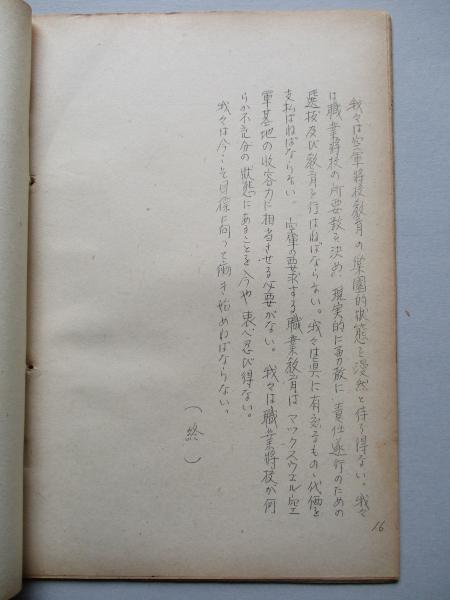 我々は空軍将校教育の楽園的状態を漫然と待ち得ない。我々
は職業将校の所要数を決め、現実的に勇敢に責任遂行のための
選抜及び教育を行はねばならない。我々は真に有効なもの丶代価を
支払はねばならない。空軍の要求する職業教育はマックスウエル空
軍基地の收容力に相当させる必要がない。我々は職業将校が何
らか不充分の状態にあることを今や裏へ忍び得ない。
我々は今こそ目標に向って働き始めねばならない。
(終)
16